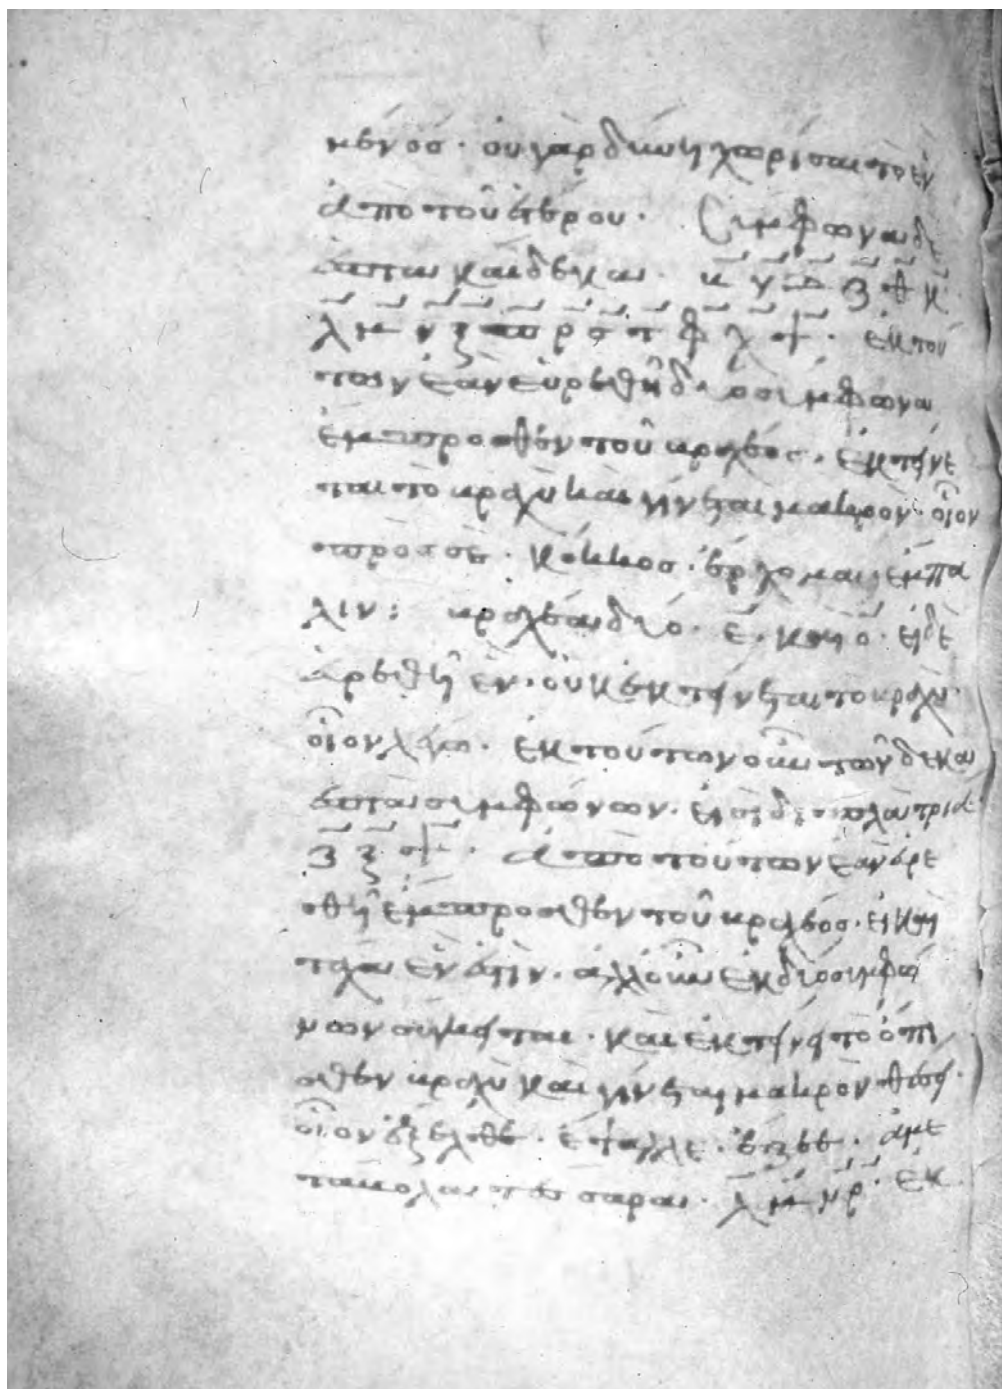 μένος· ου γὰρ δύνη χωρίσαι το ἑν
ἀπὸ τοῦ ἑτέρου· Σύμφωνα δὲ
ἑπτακαίδεκα· β γ δ ζ θ κ
λ μ ν ξ π ρ σ τ φ χ ψ· ἐκ τού
των ἐὰν εὑρεθῆ δύο σύμφωνα
ἔμπροσθεν τοῦ βραχέος· ἐκτήνε
ται το βραχὺ και γίνεται μακρον· οἷον
προς σὲ· κόκκος· ἔρχομαι· ἔμπα
λιν: βραχέα δύο· ε· και ο· εἰ δὲ
ἁρεθῆ ἑν· οὐκ ἐκτήνεται το βραχὺ·
οἷον λέγω· ἐκ τούτων οὖν των δεκα
ἑπτα συμφώνων· εἰσι διπλα τρία·
ζ ξ ψ· ἀπο τούτων ἐαν ἁρε
θῆ ἔμπροσθεν τοῦ βραχέος· εἰ και
τάχα ἑν ἐστιν· ἀλλ οὖν ἐκ δύο συμφώ
νων σύγκειται· και ἐκτήνει το ὄπι
σθεν βραχὺ και γίνεται μακρον θέσει·
οἷον ἔξελθε· ἔψαλλε· ἔζεε· ἀμε
τάβολα τέσσαρα· λ μ ν ρ· ἐκ